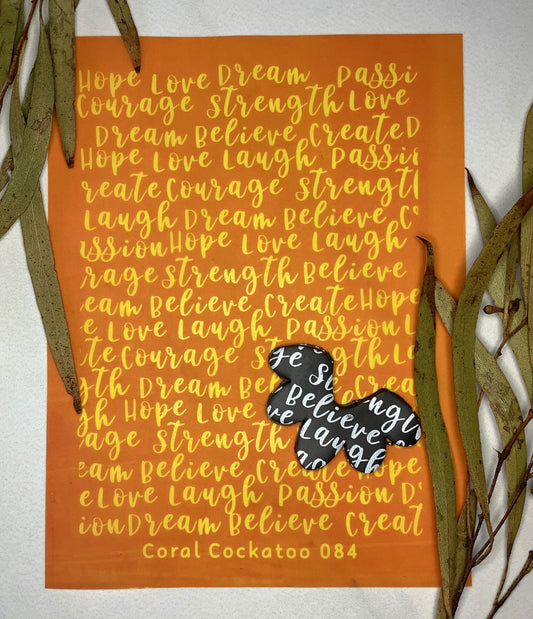 Hope Love Dream Passi
Courage Strength Love
Dream Believe Create D
Hope Love Laugh Passion
reate Courage Strength
Laugh Dream Believe C
assion Hope Love Laugh
rage Strength Believe
eam Believe Create Hope
e Love Laugh Passion L
ate Courage Strength La
gth Dream Believe
gh Hope Love
age Strength
eam Believe Create Hope
e Love Laugh Passion D
ion Dream Believe Creat
Coral Cockatoo 084
ge Strength
Believe
ve Laugh